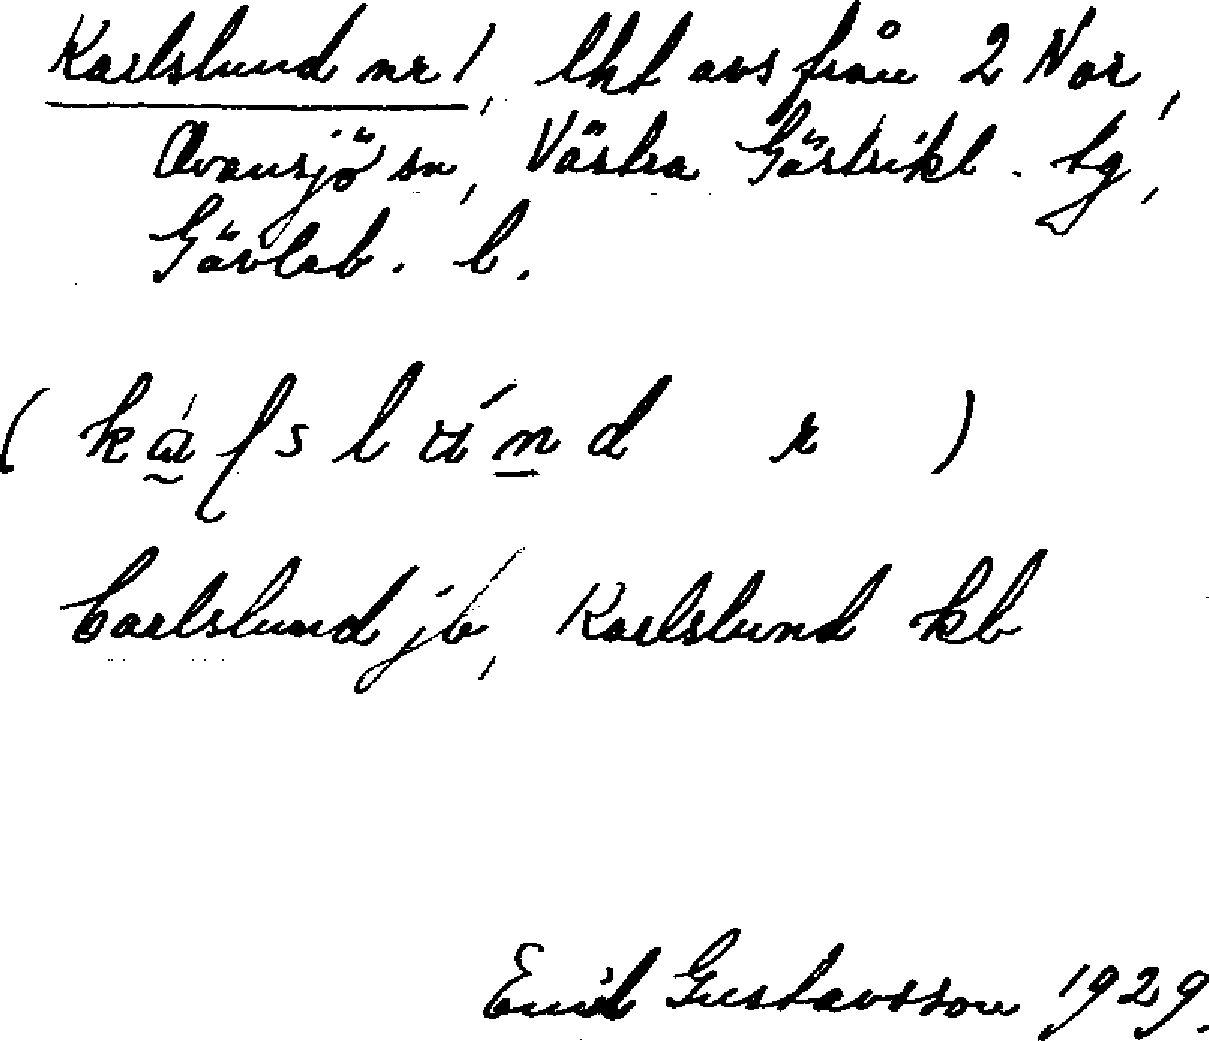 Karlslund nr 1, lht avs från 2 Nor,
Ovansjö sn, Västra Gästrikl. tg,
Gävleb. l.
Carlslund jb, Karlslund kb
Emil Gustavsson 1929.